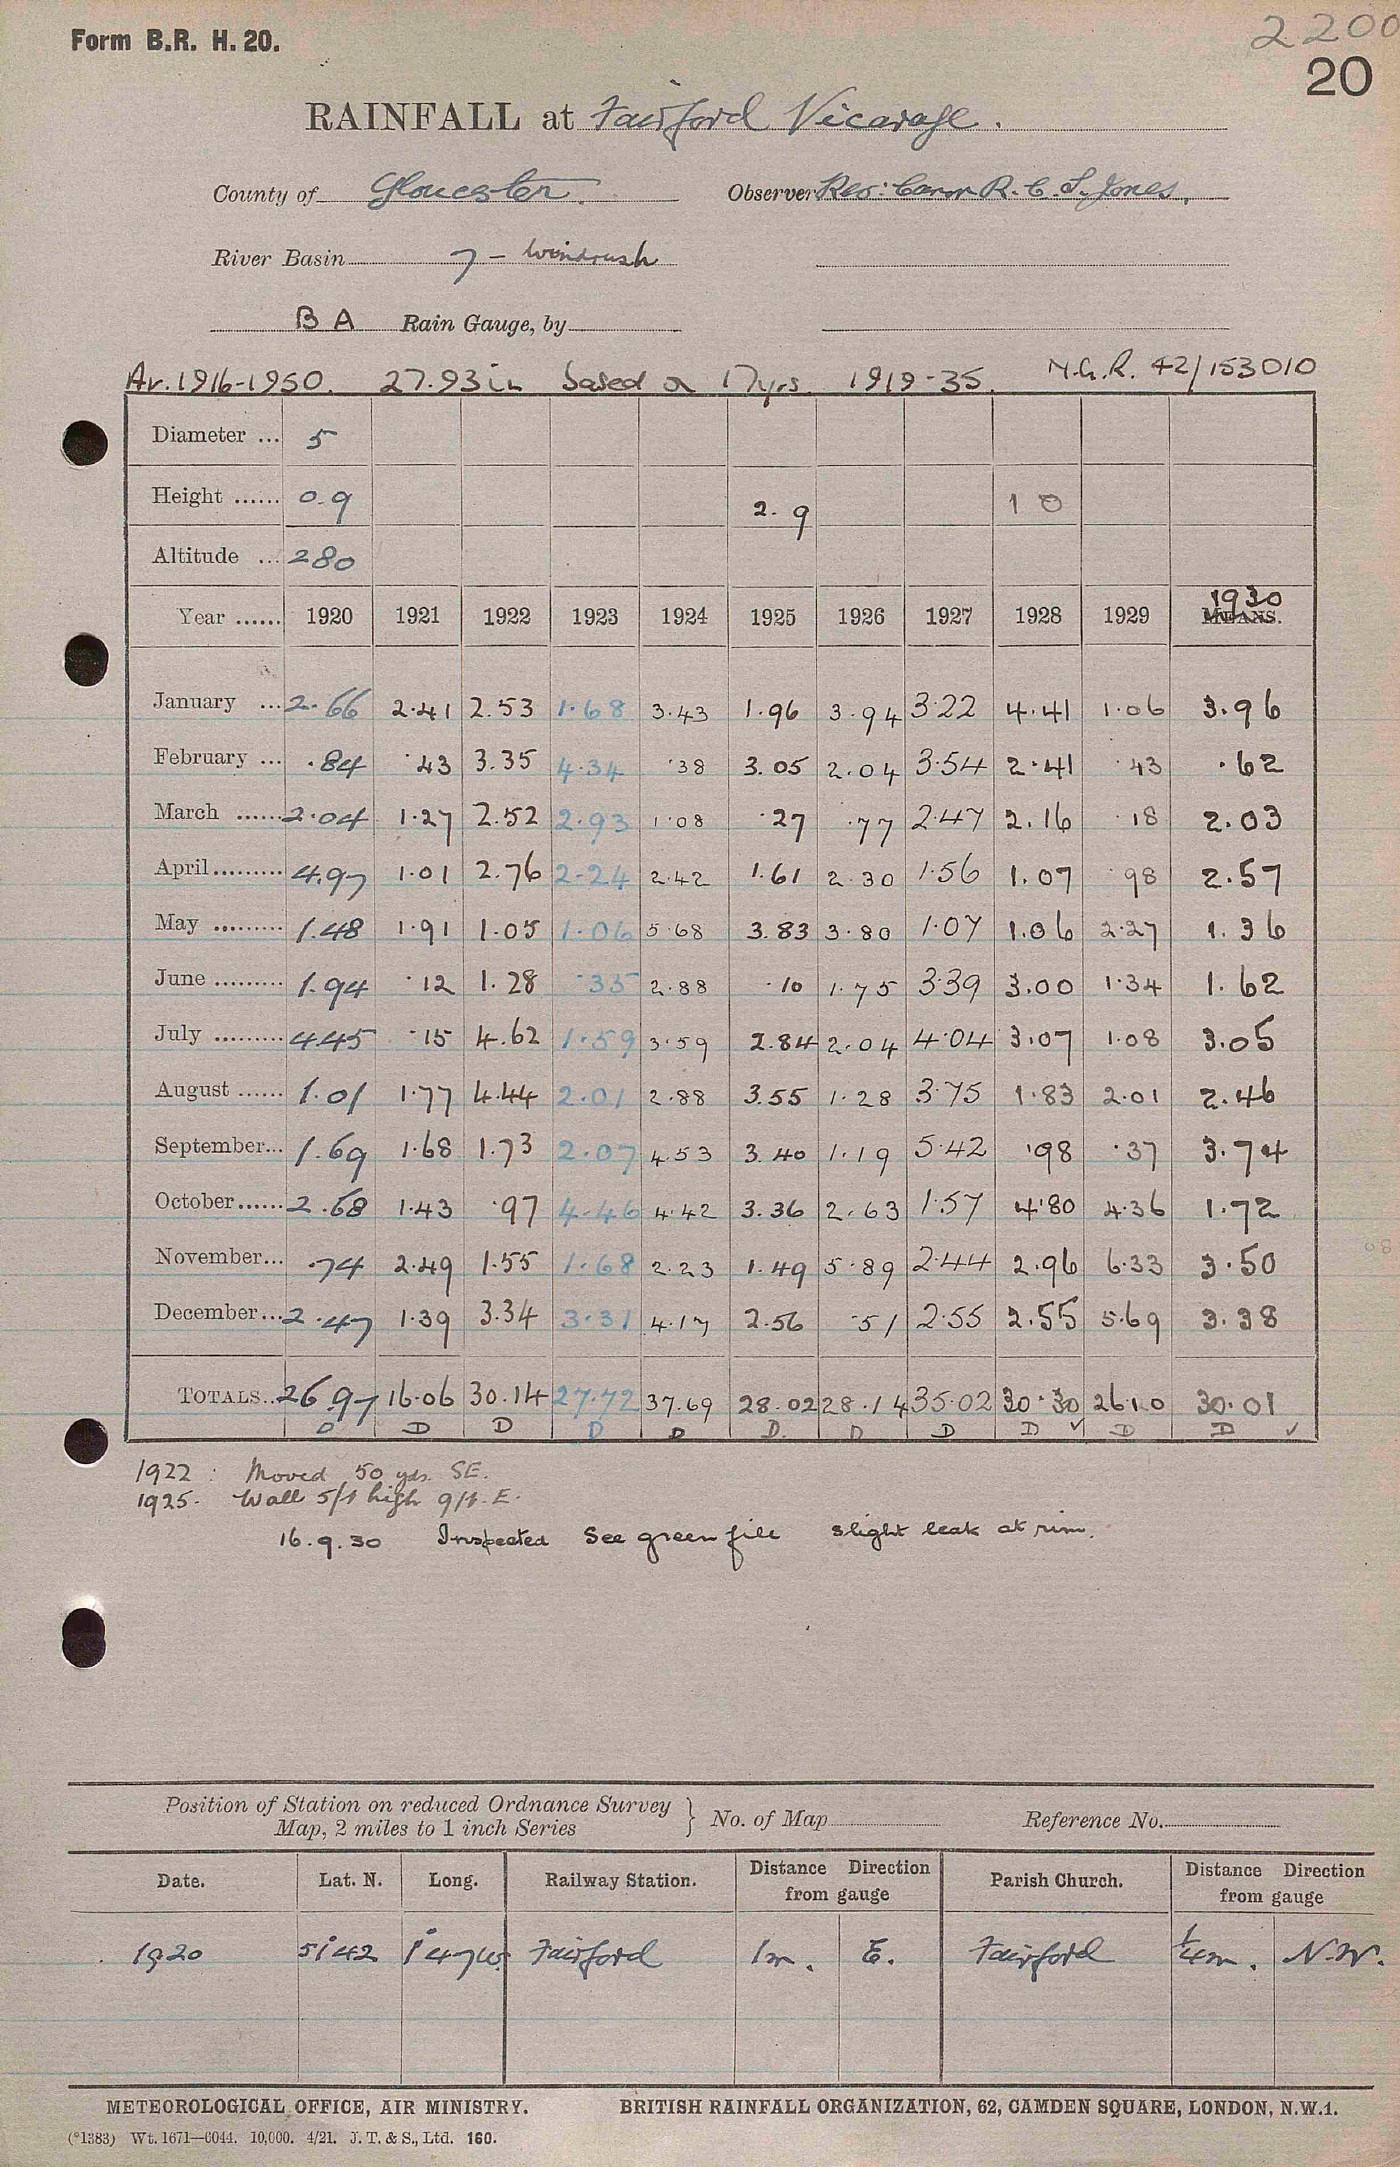 Form B.R. H. 20.
2200
20
RAINFALL at Fairford Vicarage.
County of Gloucester. Observer Rev: Canon R. C. S. Jones.
River Basin 7 - Windrush
B A Rain Gauge, by
Av. 1916-1950. 27.93 in based on 17 yrs. 1919-35. N.G.R. 42/153010
Diameter ... 5
Height ...... 0.9 2.9 10
Altitude ... 280
Year ...... 1920 1921 1922 1923 1924 1925 1926 1927 1928 1929 MEANS. 1930
January ... 2.66 2.41 2.53 1.68 3.43 1.96 3.94 3.22 4.41 1.06 3.96
February ... .84 .43 3.35 4.34 .38 3.05 2.04 3.54 2.41 .43 .62
March ...... 2.04 1.27 2.52 2.93 1.08 .27 .77 2.47 2.16 .18 2.03
April ......... 4.97 1.01 2.76 2.24 2.42 1.61 2.30 1.56 1.07 .98 2.57
May ......... 1.48 1.91 1.05 1.06 5.68 3.83 3.80 1.07 1.06 2.27 1.36
June ......... 1.94 .12 1.28 .35 2.88 .10 1.75 3.39 3.00 1.34 1.62
July ......... 4.45 .15 4.62 1.59 3.59 2.84 2.04 4.04 3.07 1.08 3.05
August ...... 1.01 1.77 4.44 2.01 2.88 3.55 1.28 3.75 1.83 2.01 2.46
September... 1.69 1.68 1.73 2.07 4.53 3.40 1.19 5.42 .98 .37 3.74
October ...... 2.68 1.43 .97 4.46 4.42 3.36 2.63 1.57 4.80 4.36 1.72
November... .74 2.49 1.55 1.68 2.23 1.49 5.89 2.44 2.96 6.33 3.50
December... 2.47 1.39 3.34 3.31 4.17 2.56 .51 2.55 2.55 5.69 3.38
TOTALS... 26.97 16.06 30.14 27.72 37.69 28.02 28.14 35.02 30.30 26.10 30.01
D D D D D D. D D D ✓ D D ✓
1922 : Moved 50 yds. SE.
1925. Wall 5ft high 9ft. E.
16.9.30 Inspected See green file slight leak at rim.
Position of Station on reduced Ordnance Survey
Map, 2 miles to 1 inch Series } No. of Map Reference No.
Date. Lat. N. Long. Railway Station. Distance Direction from gauge Parish Church. Distance Direction from gauge
1920 51°42 1°47W. Fairford 1m. E. Fairford 1/4m. N.W.
METEOROLOGICAL OFFICE, AIR MINISTRY. BRITISH RAINFALL ORGANIZATION, 62, CAMDEN SQUARE, LONDON, N.W.1.
(*1383) Wt. 1671—6044. 10,000. 4/21. J. T. & S., Ltd. 160.